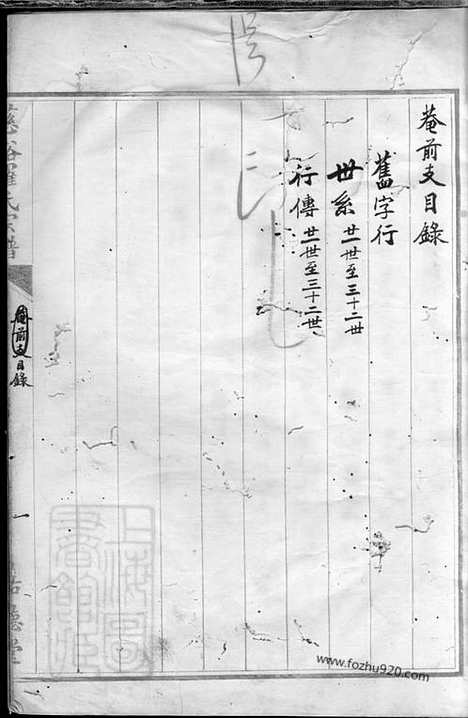 菴前支目錄
舊字行
世系 廿一世至三十二世
行傳 廿一世至三十二世
慈谿羅氏宗譜
菴前支目錄
一
www.fozhu920.com